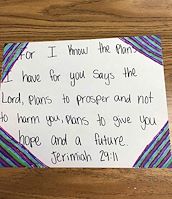 For I know the plans
I have for you says the
Lord, plans to prosper and not
to harm you, plans to give you
hope and a future.
Jerimiah 29:11